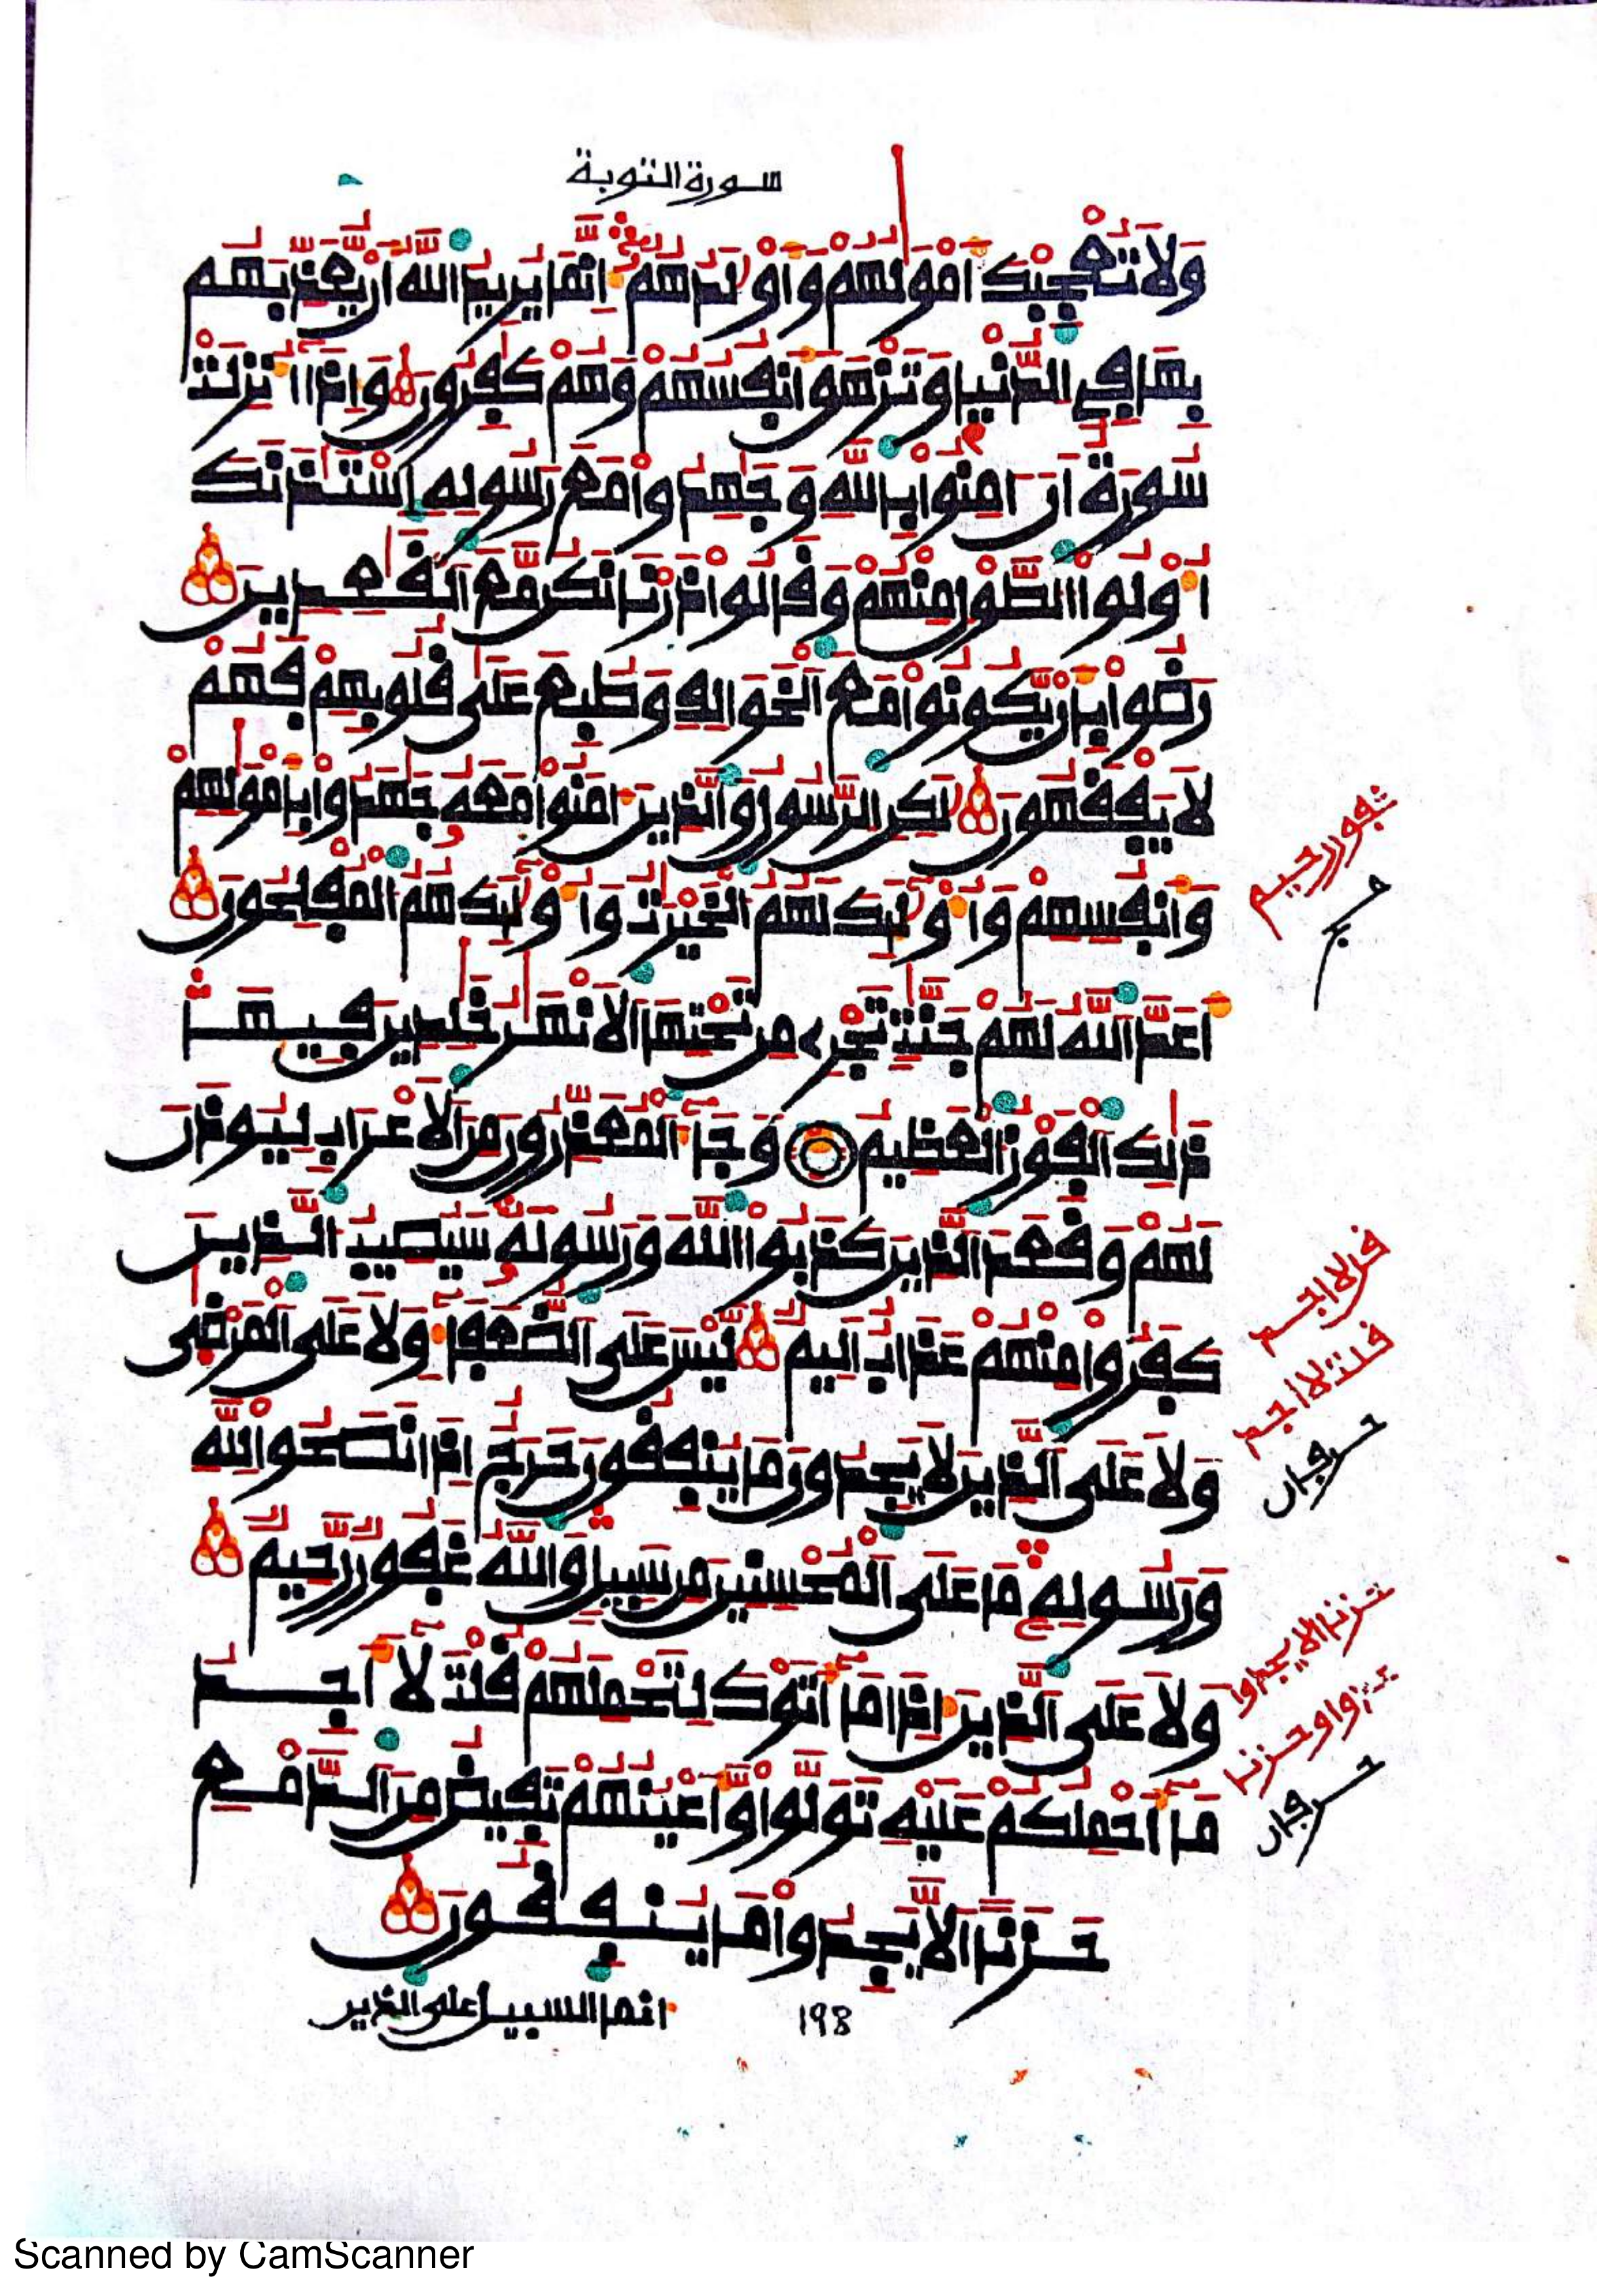 سورة التوبة
وَلَا تُعْجِبْكَ أَمْوَٰلُهُمْ وَأَوْلَٰدُهُمْ إِنَّمَا يُرِيدُ اللَّهُ أَنْ يُّعَذِّبَهُم
بِهَا فِي الدُّنْيَا وَتَزْهَقَ أَنفُسُهُمْ وَهُمْ كَٰفِرُونَ وَإِذَا أُنزِلَتْ
سُورَةٌ أَنْ ءَامِنُوا بِاللَّهِ وَجَٰهِدُوا مَعَ رَسُولِهِ اسْتَـْٔذَنَكَ
أُوْلُوا الطَّوْلِ مِنْهُمْ وَقَالُوا ذَرْنَا نَكُن مَّعَ الْقَٰعِدِينَ
رَضُوا بِأَنْ يَّكُونُوا مَعَ الْخَوَالِفِ وَطُبِعَ عَلَىٰ قُلُوبِهِمْ فَهُمْ
لَا يَفْقَهُونَ لَٰكِنِ الرَّسُولُ وَالَّذِينَ ءَامَنُوا مَعَهُ جَٰهَدُوا بِأَمْوَٰلِهِمْ
وَأَنفُسِهِمْ وَأُوْلَٰٓئِكَ لَهُمُ الْخَيْرَٰتُ وَأُوْلَٰٓئِكَ هُمُ الْمُفْلِحُونَ
أَعَدَّ اللَّهُ لَهُمْ جَنَّٰتٍ تَجْرِي مِن تَحْتِهَا الْأَنْهَٰرُ خَٰلِدِينَ فِيهَا
ذَٰلِكَ الْفَوْزُ الْعَظِيمُ وَجَآءَ الْمُعَذِّرُونَ مِنَ الْأَعْرَابِ لِيُوذَنَ
لَهُمْ وَقَعَدَ الَّذِينَ كَذَبُوا اللَّهَ وَرَسُولَهُ سَيُصِيبُ الَّذِينَ
كَفَرُوا مِنْهُمْ عَذَابٌ أَلِيمٌ لَّيْسَ عَلَى الضُّعَفَآءِ وَلَا عَلَى الْمَرْضَىٰ
وَلَا عَلَى الَّذِينَ لَا يَجِدُونَ مَا يُنفِقُونَ حَرَجٌ إِذَا نَصَحُوا لِلَّهِ
وَرَسُولِهِ مَا عَلَى الْمُحْسِنِينَ مِن سَبِيلٍ وَاللَّهُ غَفُورٌ رَّحِيمٌ
وَلَا عَلَى الَّذِينَ إِذَا مَآ أَتَوْكَ لِتَحْمِلَهُمْ قُلْتَ لَآ أَجِدُ
مَآ أَحْمِلُكُمْ عَلَيْهِ تَوَلَّوا وَّأَعْيُنُهُمْ تَفِيضُ مِنَ الدَّمْعِ
حَزَنًا أَلَّا يَجِدُوا مَا يُنفِقُونَ
198
انما السبيل على الذين
Scanned by CamScanner